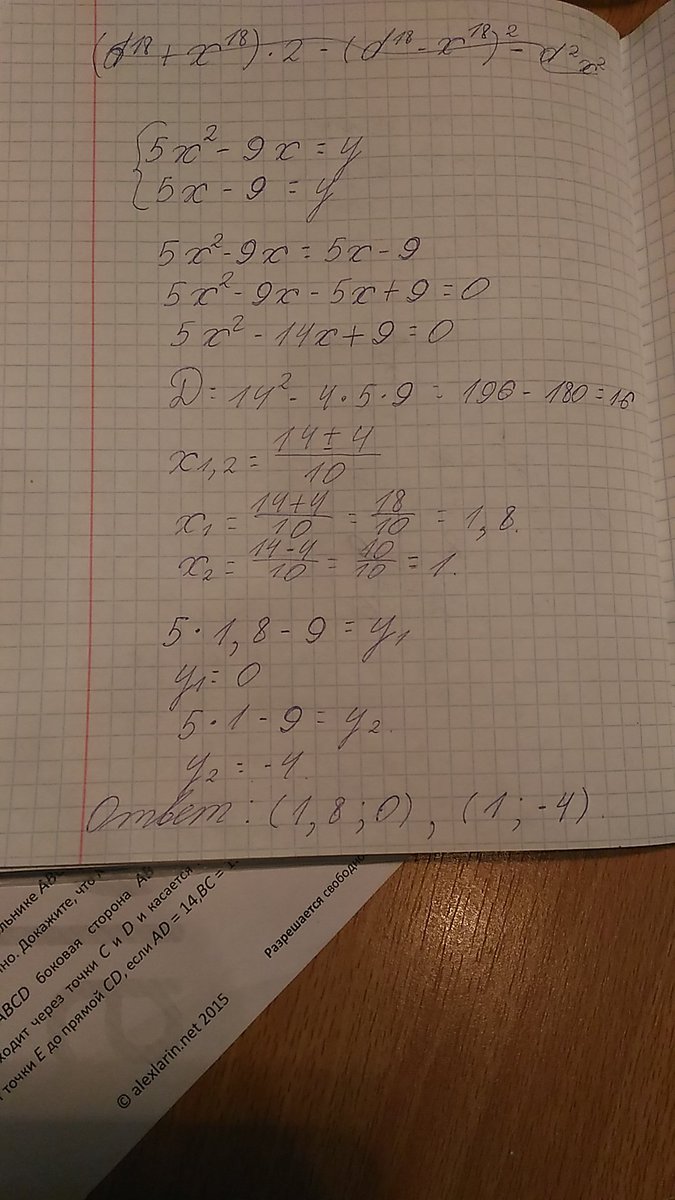 (d¹⁸ + x¹⁸) · 2 - (d¹⁸ - x¹⁸)² - d²x²
{5x² - 9x = y
5x - 9 = y
5x² - 9x = 5x - 9
5x² - 9x - 5x + 9 = 0
5x² - 14x + 9 = 0
D = 14² - 4·5·9 = 196 - 180 = 16
x1,2 = (14 ± 4)/10
x1 = (14+4)/10 = 18/10 = 1,8.
x2 = (14-4)/10 = 10/10 = 1.
5 · 1,8 - 9 = y1
y1 = 0
5 · 1 - 9 = y2.
y2 = -4.
Ответ: (1,8; 0), (1; -4).
но. Докажите, что
ABCD боковая сторона AB
ходит через точки C и D и касается
точки E до прямой CD, если AD = 14, BC = 1
Разрешается свободно
© alexlarin.net 2015